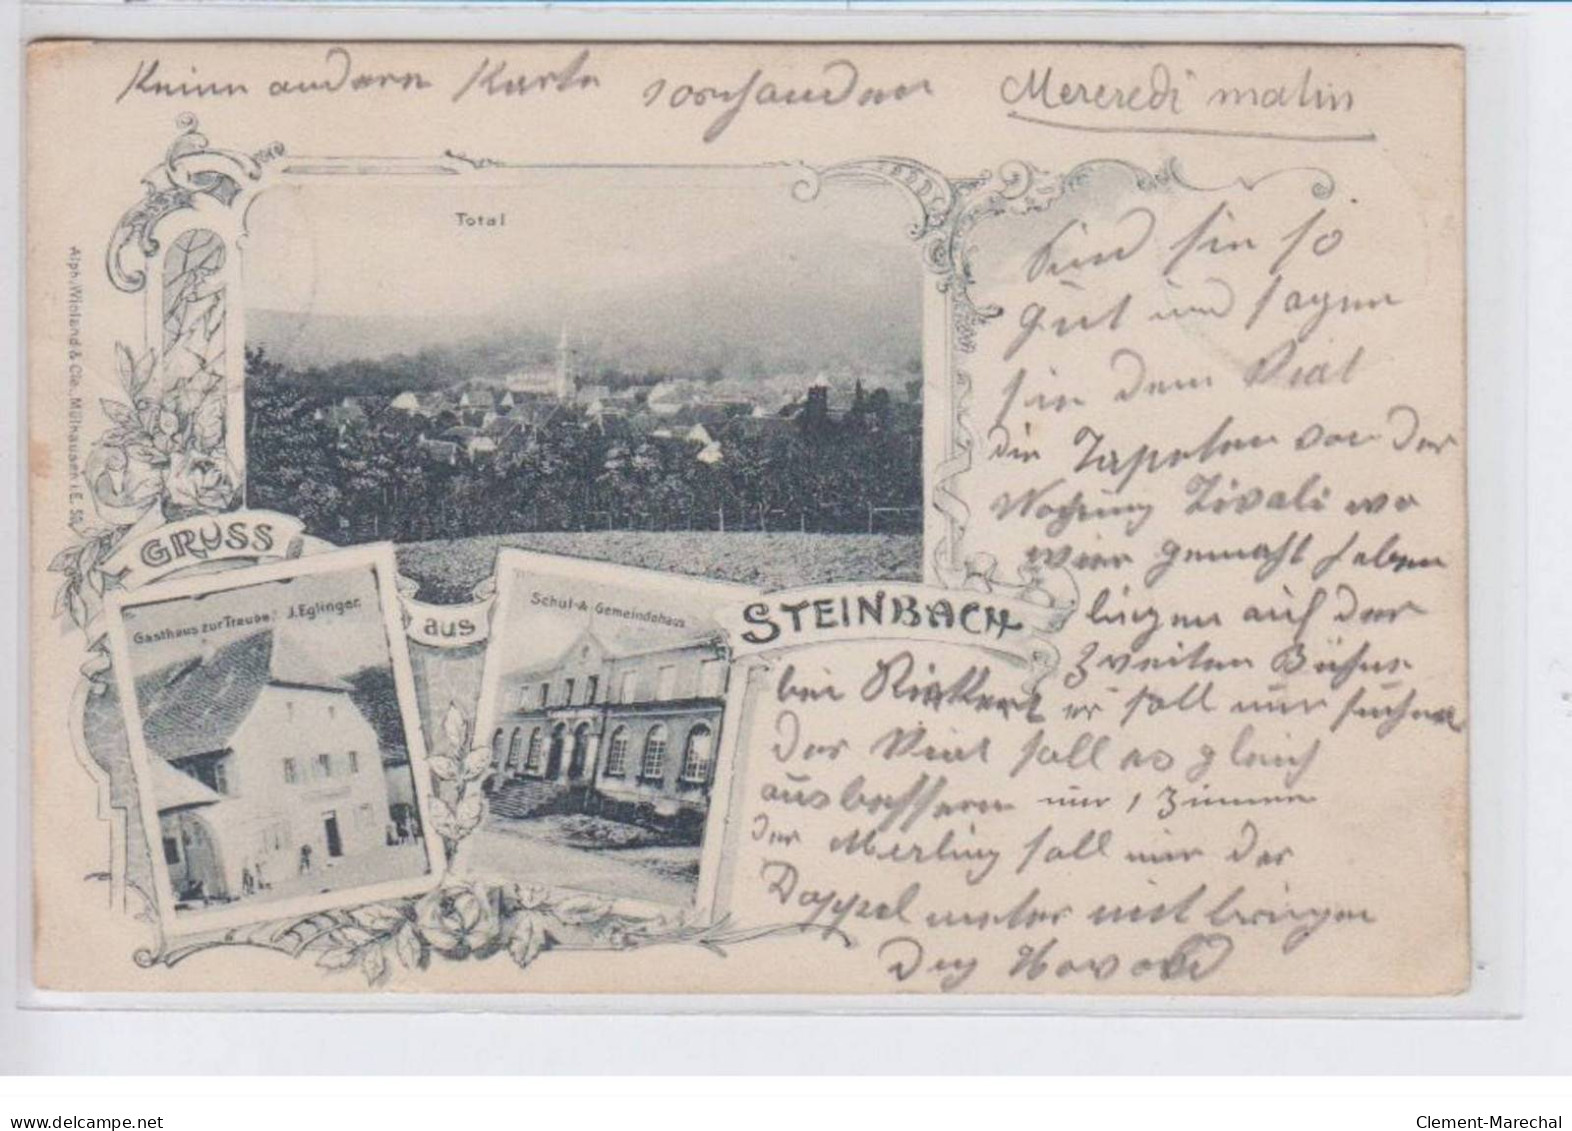 Keine andere Karte vorhanden
Mercredi matin
Total
Alph. Wioland & Cie. Mülhausen i. E.
GRUSS
aus
STEINBACH
Gasthaus zur Traube J. Eglinger
Schul- & Gemeindehaus
Sind sie so
gut und sagen
sie dem Viat
die Tapeten von der
Tivoli wo
wier gemacht haben
liegen auf der
zweiten Bühne
bei er soll nur suchen
Der Viat soll es gleich
ausbessern nur 1 Zimmer
der Merling soll mir der
Doppel meter mit bringen
delcampe.net
Clement-Marechal